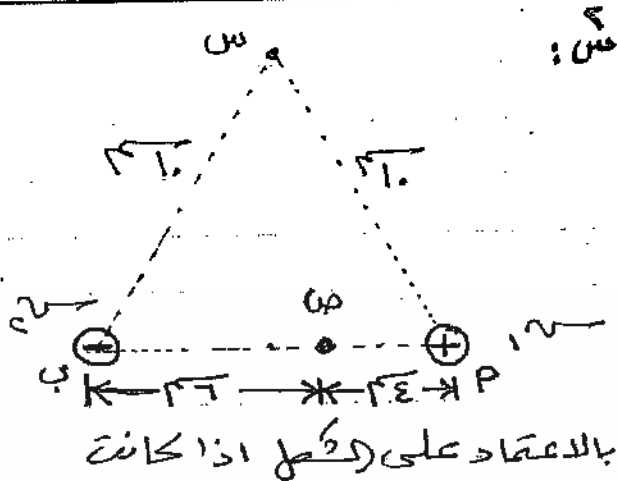 س٢:
س
١٠م ١٠م
ص
س٢ − + س١
ب ٦م ٤م P
بالاعتماد على الشكل اذا كانت